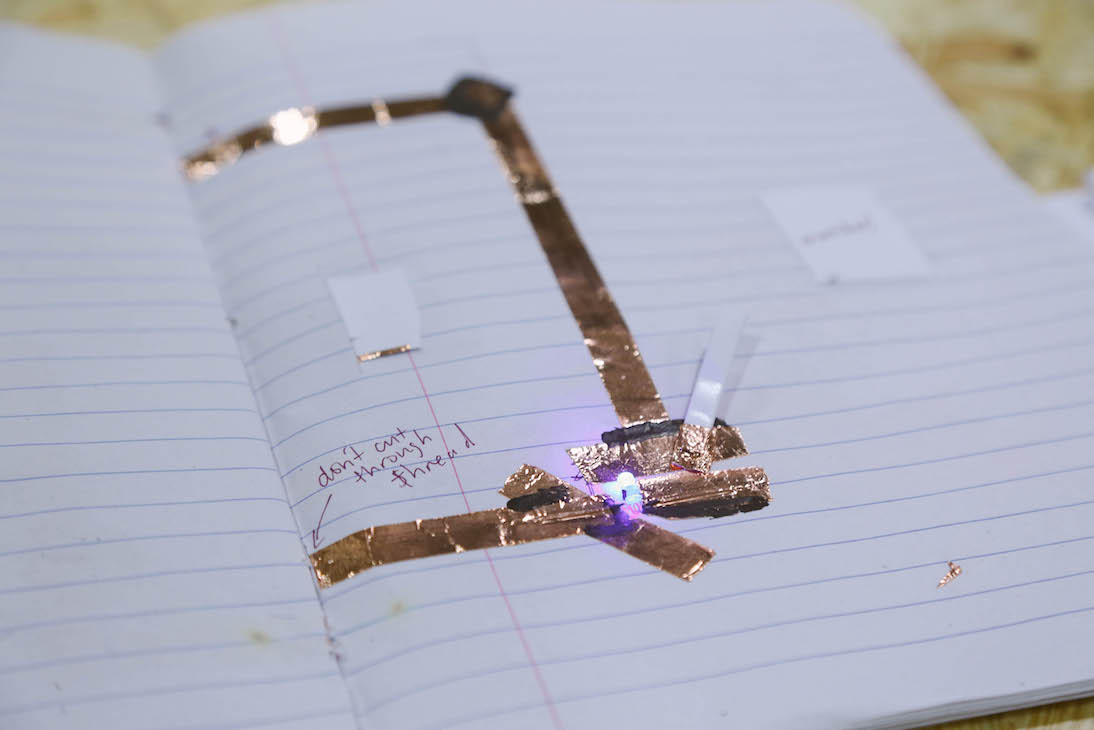 don't cut
through
thread